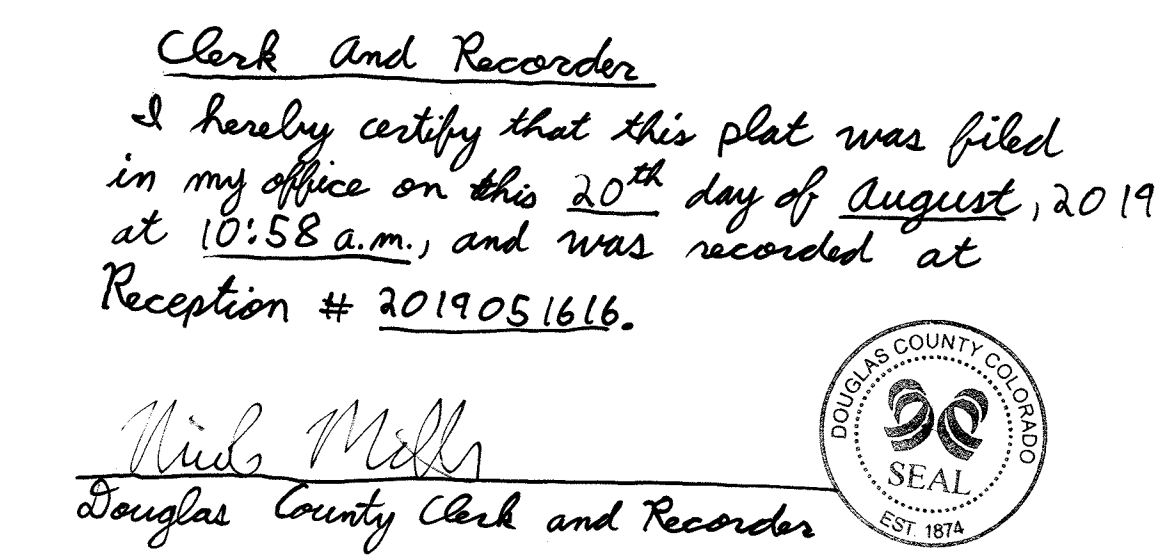 Clerk And Recorder
I hereby certify that this plat was filed
in my office on this 20th day of August, 2019
at 10:58 a.m., and was recorded at
Reception # 2019051616.
DOUGLAS COUNTY COLORADO
SEAL
EST. 1874
Mills
Douglas County Clerk and Recorder